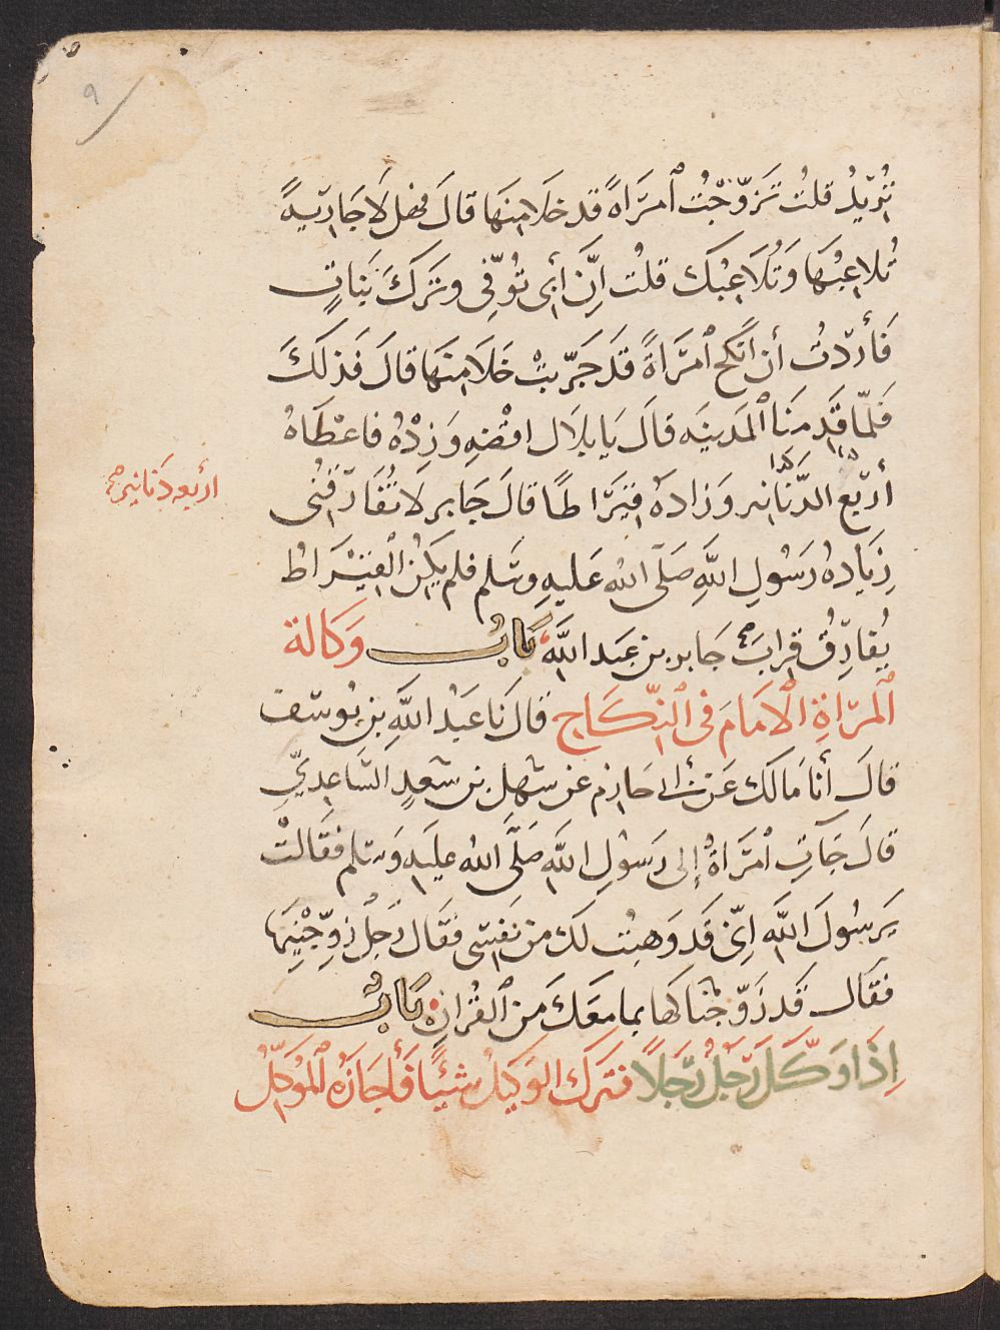 ٩
تُرِيدُ قلتُ تَزَوَّجْتُ ٱمرَاةً قد خلَا منهَا قالَ فهل لَا جَارِيَةً
تُلاعِبُهَا وَتُلَاعِبُكَ قلتُ اِنَّ أبى تُوُفِّى وتَرَكَ بَنَاتٍ
فَأَرَدْتُ أن انْكِحَ ٱمْرَاةً قد جَرَّبتْ خَلَا مِنهَا قالَ فَذلكَ
فَلَمَّا قَدِمنَا ٱلمَدينَه قالَ يَا بِلَال اقْضِهِ وَزِدْهُ فاعْطَاهُ
أرْبَع الدَّنَانير وَزادَهُ قِيرَاطًا قالَ جَابر لَا تُفَارقُنِى
كذا
اربَعه دَنَانير صح
زِيَادهُ رَسُولِ اللَّهِ صَلَّى الله عَليهِ وسَلم فلم يَكُن القِيْرَاطُ
يُفارِقُ قِرابَ جَابر بن عَبد اللَّه بَابُ وَكَالة
ٱلمَرْاةِ ٱلامَامَ فى ٱلنِّكَاحِ قالَ نَا عَبْدُ اللَّهِ بن يُوسُف
قالَ أنَا مَالك عَن أبى حَازِم عن سَهْلِ بن سَعدٍ السَّاعِدِيِّ
قالَ جَآتِ ٱمْرَاةٌ إلى رَسُولِ اللَّهِ صَلَّى الله عليهِ وَسَلم فقَالتْ
يَرسُولَ اللَّهِ اِنِّى قَد وَهبْتُ لكَ من نَفْسِى فقَال رَجلٌ زوِّجْنِيهَا
فقَالَ قَد زَوَّجْنَاكَهَا بما مَعَكَ مَن ٱلقُرانِ بَابُ
اِذَا وَكَّلَ رَجُلٌ رَجلًا فتَرَك الوَكيلُ شَيْئًا فأَجَازَهُ ٱلمُوَكِّلُ